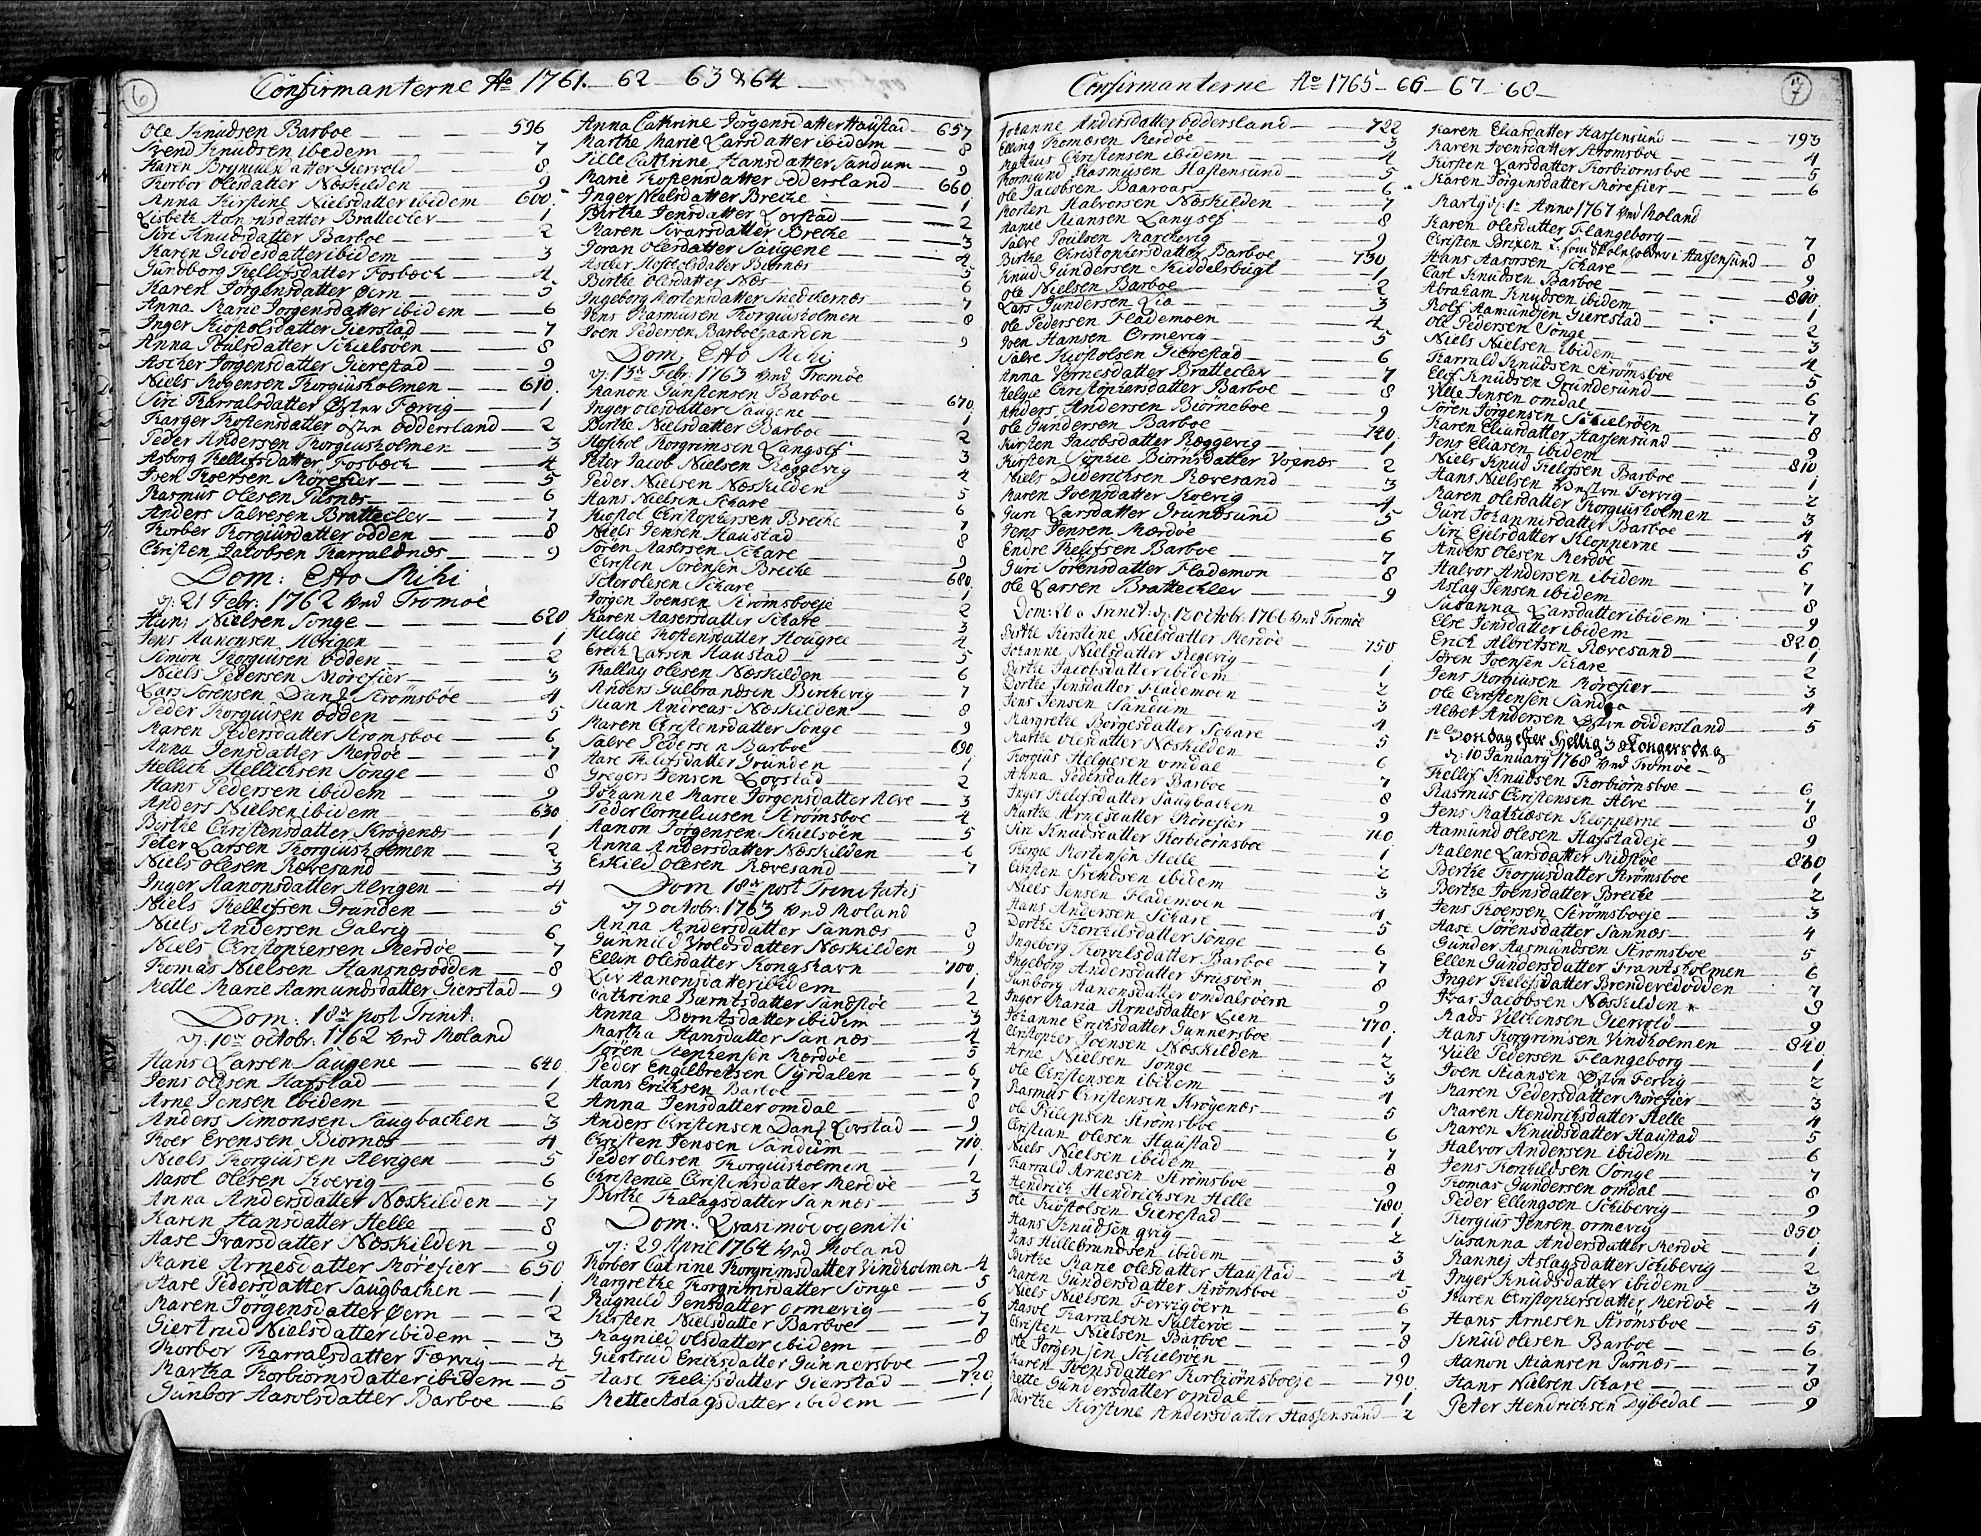 6
Confirmanterne Ao 1761. 62 63 & 64
Ole Knudsen Barboe 596
Svend Knudsen ibidem 7
Karen Brynildsdatter Giervold 8
Torbor Olesdatter Næskilden 9
Anna Kirstine Nielsdatter ibidem 600
Lisbeth Aanonsdatter Bratteclev 1
Siri Knudsdatter Barboe 2
Karen Giodesdatter ibidem 3
Gundborg Tellefsdatter Fosbæck 4
Karen Jørgensdatter Øern 5
Anna Marie Jørgensdatter ibidem 6
Inger Kiøstolsdatter Gierstad 7
Anna Poulsdatter Schielsøen 8
Ascher Jørgensdatter Gierestad 9
Niels Mogensen Torgiusholmen 610
Siri Harralsdatter Østen Færvig 1
Targer Tostensdatter østen Oddersland 2
Peder Andersen Torgiusholmen 3
Asborg Tellefsdatter Fosbæck 4
Iven Roersen Mørefier 5
Rasmus Olesen Pusnæs 6
Anders Salvesen Bratteclev 7
Torbor Torgiusdatter Odden 8
Christen Jacobsen Harraldnæs 9
Dom: Esto Mihi
d: 21 Febr. 1762 ved Tromøe
Hans Nielsen Songe 620
Jens Aanonsen Alvigen 1
Simon Torgiusen Odden 2
Niels Pedersen Mørefier 3
Lars Sørensen Dans Strømsboe 4
Peder Torgiusen Odden 5
Maren Pedersdatter Strømsboe 6
Anna Jensdatter Merdøe 7
Hellich Hellichsen Songe 8
Hans Pedersen ibidem 9
Anders Nielsen ibidem 630
Birthe Christensdatter Krøgenæs 1
Peter Larsen Torgiusholmen 2
Niels Olesen Rævesand 3
Inger Aanonsdatter Alvigen 4
Niels Tellefsen Grunden 5
Niels Andersen Galvig 6
Niels Christophersen Merdøe 7
Thomas Nielsen Hansnæsodden 8
Mette Marie Aamundsdatter Gierstad 9
Dom: 18de post Trinit:
d: 10de Octobr. 1762 ved Moland
Hans Larsen Saugene 640
Jens Olesen Hafstad 1
Arne Jensen ibidem 2
Anders Simonsen Saugbachen 3
Roer Evensen Biørnæs 4
Niels Torgiusen Alvigen 5
Aasol Olesen Roevig 6
Anna Andersdatter Næskilden 7
Karen Hansdatter Helle 8
Aase Ivarsdatter Næskilden 9
Marie Arnesdatter Mørefier 650
Aase Pedersdatter Saugbachen 1
Maren Jørgensdatter Øern 2
Giertrud Nielsdatter ibidem 3
Torbor Harralsdatter Færvig 4
Martha Torbiørnsdatter ibidem 5
Gunbor Aasolsdatter Barboe 6
Anna Cathrine Jørgensdatter Haustad 657
Marthe Marie Larsdatter ibidem 8
Sille Cathrine Hansdatter Sandum 9
Marie Tostensdatter Oddersland 660
Inger Nielsdatter Breche 1
Birthe Jensdatter Lovstad 2
Karen Ivarsdatter Breche 3
Joran Olesdatter Saugene 4
Ascher Kiøstolsdatter Biørnæs 5
Birthe Olesdatter Næs 6
Ingeborg Mortensdatter Snedkernæs 7
Jens Rasmusen Torgiusholmen 8
Joen Pedersen Barboegaarden 9
Dom. Esto Mihi
d: 13de Febr. 1763 ved Tromøe
Aanon Gunstensen Barboe 670
Inger Olesdatter Saugene 1
Birthe Nielsdatter Barboe 2
Kiøstol Torgrimsen Langsef 3
Peter Jacob Nielsen Ræggevig 4
Peder Nielsen Næskilden 5
Hans Nielsen Schare 6
Kiøstol Christophersen Breche 7
Niels Jensen Haustad 8
Søren Aasersen Schare 9
Christen Sørensen Breche 680
Peter Olesen Schare 1
Jørgen Joensen Strømsboeje 2
Karen Aasersdatter Schare 3
Helgie Tostensdatter Hougree 4
Erich Larsen Haustad 5
Hallag Olesen Næskilden 6
Anders Gulbrandsen Birchevig 7
Stian Andreas Næskilden 8
Maren Christensdatter Songe 9
Salve Pedersen Barboe 690
Aase Tellefsdatter Grunden 1
Gregers Jensen Lovstad 2
Johanne Marie Jørgensdatter Alve 3
Peder Corneliusen Strømsboe 4
Aanon Jørgensen Schielsøen 5
Anna Andersdatter Næskilden 6
Eskild Olesen Rævesand 7
Dom 18de post Trinitatis
d 9 octobr. 1763 ved Moland
Anna Andersdatter Sannæs 8
Gunnild Vroldsdatter Næskilden 9
Ellin Olesdatter Kongshavn 700
Liv Aanonsdatter ibidem 1
Cathrine Berntsdatter Sandstøe 2
Anna Berntsdatter ibidem 3
Martha Hansdatter Sannæs 4
Søren Stephensen Merdøe 5
Peder Engelbretsen Syrdalen 6
Hans Eriksen Barboe 7
Anna Jensdatter Omdal 8
Anders Christensen Dans Lovstad 9
Christen Jensen Sandum 710
Peder Olesen Torgiusholmen 1
Christenie Christensdatter Merdøe 2
Birthe Halagsdatter Sannæs 3
Dom: Qvasimodogeniti
d: 29 April 1764 ved Moland
Torber Catrine Torgrimsdatter Vindholmen 4
Margrethe Torgrimsdatter Songe 5
Ragnild Jensdatter Ormevig 6
Kirsten Nielsdatter Barboe 7
Magnild Olsdatter ibidem 8
Giertrud Eriksdatter Gunnersboe 9
Aase Tellefsdatter Gierstad 720
Mette Aslagsdatter ibidem 1
7
Confirmanterne Ao 1765 - 66 - 67 - 68
Johanne Andersdatter Oddersland 722
Elling Thomæsen Merdøe 3
Mathias Christensen ibidem 4
Tormund Rasmusen Hastensund 5
Ole Jacobsen Baaraas 6
Morten Halvorsen Næskilden 7
Hans Stiansen Langsef 8
Salve Poulsen Marchevig 9
Birthe Christophersdatter Barboe 730
Knud Gundersen Kiddelsbugt 1
Ole Nielsen Barboe 2
Lars Gundersen Lia 3
Ole Pedersen Flademoen 4
Joen Hansen Ormevig 5
Salve Kiøstolsen Gierestad 6
Anna Jørnesdatter Bratteclev 7
Helgie Christophersdatter Barboe 8
Anders Andersen Biørneboe 9
Ole Gundersen Barboe 740
Kirsten Jacobsdatter Ræggevig 1
Kirsten Sophie Biørnsdatter Vognæs 2
Niels Diderichsen Rævesand 3
Maren Joensdatter Roevig 4
Guri Larsdatter Grundsund 5
Jens Jensen Merdøe 6
Endre Tellefsen Barboe 7
Guri Sørensdatter Flademon 8
Ole Larsen Brattechlev 9
Dom: 20 a Trinit: d: 12 octobr. 1766 ved Tromøe
Birthe Kirstine Nielsdatter Merdøe 750
Johanne Nielsdatter Regevig 1
Birthe Jacobsdatter ibidem 2
Dorthe Jensdatter Flademoen 3
Jens Jensen Sandum 4
Margrethe Børgesdatter Schare 5
Marthe Olesdatter Næskilden 6
Torgius Helgiesen Omdal 7
Anna Pedersdatter Barboe 8
Inger Tellefsdatter Saugbachen 9
Marthe Arnesdatter Mørefier 760
Siri Knudsdatter Torbiørnsboe 1
Tergie Mortensen Helle 2
Christen Svendsen ibidem 3
Niels Jensen Flademoen 4
Hans Andersen Schare 5
Dorthe Torchilsdatter Songe 6
Ingeborg Torchilsdatter Barboe 7
Ingeborg Andersdatter Frisøen 8
Gunborg Aanonsdatter Omdalsøern 9
Inger Maria Arnesdatter Lien 770
Johanne Eriksdatter Gunnersboe 1
Christopher Joensen Næskilden 2
Arne Nielsen Songe 3
Ole Christensen ibidem 4
Rasmus Christensen Krøgenæs 5
Ole Philipsen Strømsboe 6
Christian Olesen Haustad 7
Niels Nielsen ibidem 8
Harrald Arnesen Strømsboe 9
Hendrich Hendrichsen Helle 780
Ole Kiøstolsen Gierestad 1
Hans Knudsen Qvig 2
Jens Hillebrandsen ibidem 3
Birthe Marie Olesdatter Haustad 4
Maren Gundersdatter Strømsboe 5
Niels Nielsen Fervigøern 6
Aasol Harralsen Salterøe 7
Christen Nielsen Barboe 8
Ole Jørgensen Schielsøen 9
Maren Joensdatter Torbiørnsboeje 790
Mette Gundersdatter Omdal 1
Birthe Kirstine Andersdatter Hastensund 2
Karen Eliasdatter Hastensund 793
Maren Joensdatter Strømsboe 4
Kirsten Larsdatter Torbiornsboe 5
Karen Jørgensdatter Mørefier 6
Martj d: 1te Anno 1767 ved Moland
Karen Olesdatter Flangeborg 7
Christen Brixen Z. som Skoleholder i Hastensund 8
Hans Aasersen Schare 9
Carl Knudsen Barboe 800
Abraham Knudsen ibidem 1
Rolf Aamundsen Gierestad 2
Ole Pedersen Songe 3
Niels Nielsen ibidem 4
Harrald Knudsen Strømsboe 5
Elef Knudsen Grundesund 6
Ville Jensen Omdal 7
Søren Jørgensen Schielsøen 8
Karen Eliasdatter Hastensund 9
Jens Eliasen ibidem 810
Niels Knud Tellefsen Barboe 1
Hans Nielsen Østen Fervig 2
Maren Olesdatter Torgiusholmen 3
Guri Johannisdatter Barboe 4
Siri Gjelsdatter Klopperne 5
Anders Olesen Merdøe 6
Halvor Andersen ibidem 7
Aslag Jensen ibidem 8
Susanna Larsdatter ibidem 9
Else Jensdatter ibidem 820
Erich Albretsen Rævesand 1
Søren Joensen Schare 2
Jens Torgiusen Mørefier 3
Ole Christensen Sandøe 4
Albret Andersen Østen Oddersland 5
1te Søndag efter Hellig 3 Kongers dag
d: 10 January 1768 ved Tromøe
Tellif Knudsen Torbiørnsboe 6
Rasmus Christensen Alve 7
Jens Mathiæsen Klopperne 8
Aamund Olesen Hafstadeje 9
Malene Larsdatter Midstøe 830
Berthe Torjusdatter Strømsboe 1
Berthe Joensdatter Breche 2
Jens Roersen Strømsboeje 3
Aase Sørensdatter Sannæs 4
Gunder Aasmundsen Strømsboe 5
Ellen Gundersdatter Frantsholmen 6
Inger Tellefsdatter Brendevedodden 7
Ivar Jacobsen Næskilden 8
Mads Vilchensen Giervold 9
Hans Torgrimsen Vindholmen 840
Ville Pedersen Flangeborg 1
Joen Stiansen Østen Fervig 2
Maren Pedersdatter Mørefier 3
Maren Hendrichsdatter Helle 4
Maren Knudsdatter Haustad 5
Halvor Andersen ibidem 6
Jens Torchildsen Songe 7
Thomas Gundersen Omdal 8
Peder Ellingsen Schibevig 9
Torgius Jensen Ormevig 850
Susanna Andersdatter Merdøe 1
Rannej Aslagsdatter Schibevig 2
Inger Knudsdatter ibidem 3
Maren Christophersdatter Merdøe 4
Hans Arnesen Strømsboe 5
Knud Olesen Barboe 6
Aanon Stiansen Pusnæs 7
Hans Nielsen Schare 8
Peter Hendrichsen Dybedal 9